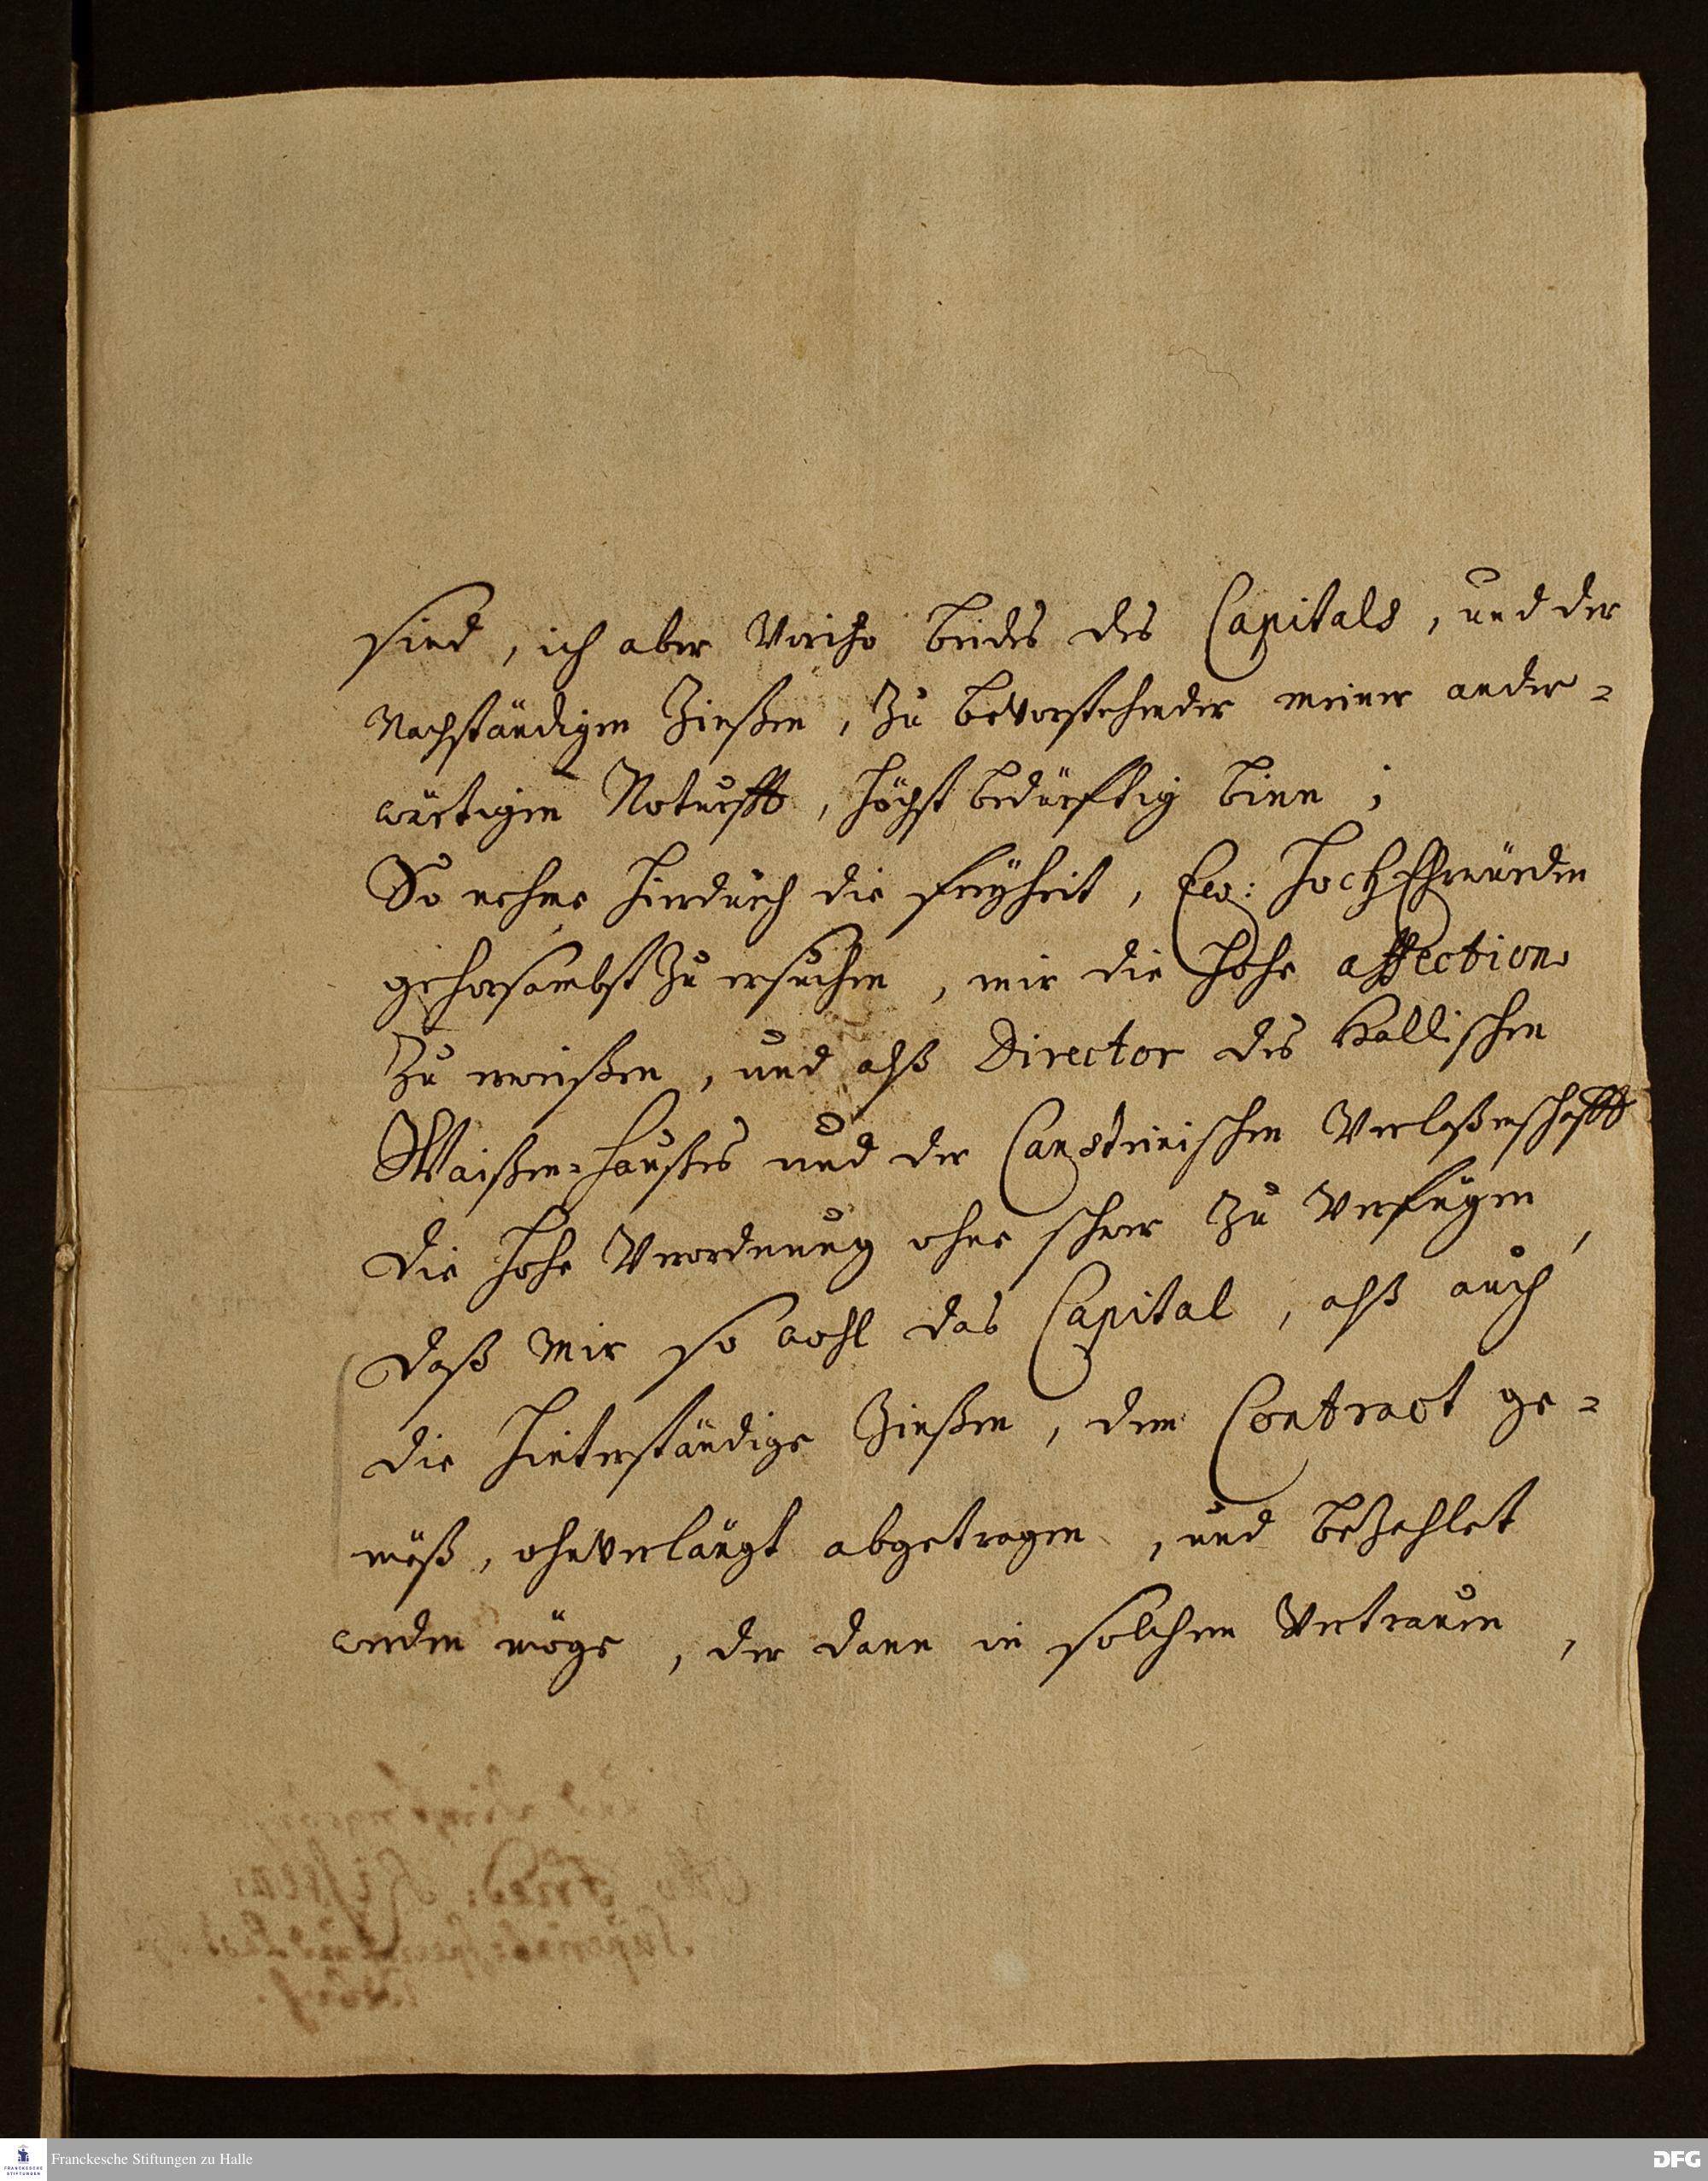 sind, ich aber voritzo beides des Capitals, und der
Nachständigen Zinßen, zu bevorstehender meiner ander=
wärtigen Noturfft, höchst bedürfftig binn;
So nehme hierdurch die freyheit, Ew: HochEhrwürden
gehorsambst zu ersuchen, mir die hohe affection
zu erweißen, und alß Director des Hallischen
Waißen=Haußes und der Cansteinischen Verlaßenschafft
die hohe Verordnung ohne schwer zu verfügen,
daß mir so wohl das Capital, alß auch
die hinterständige Zinßen, dem Contract ge=
mäß, ohnverlängt abgetragen, und bezahlet
werden möge, der dann in solchem Vertrauen,
Franckesche Stiftungen zu Halle
FRANCKESCHE
STIFTUNGEN
DFG